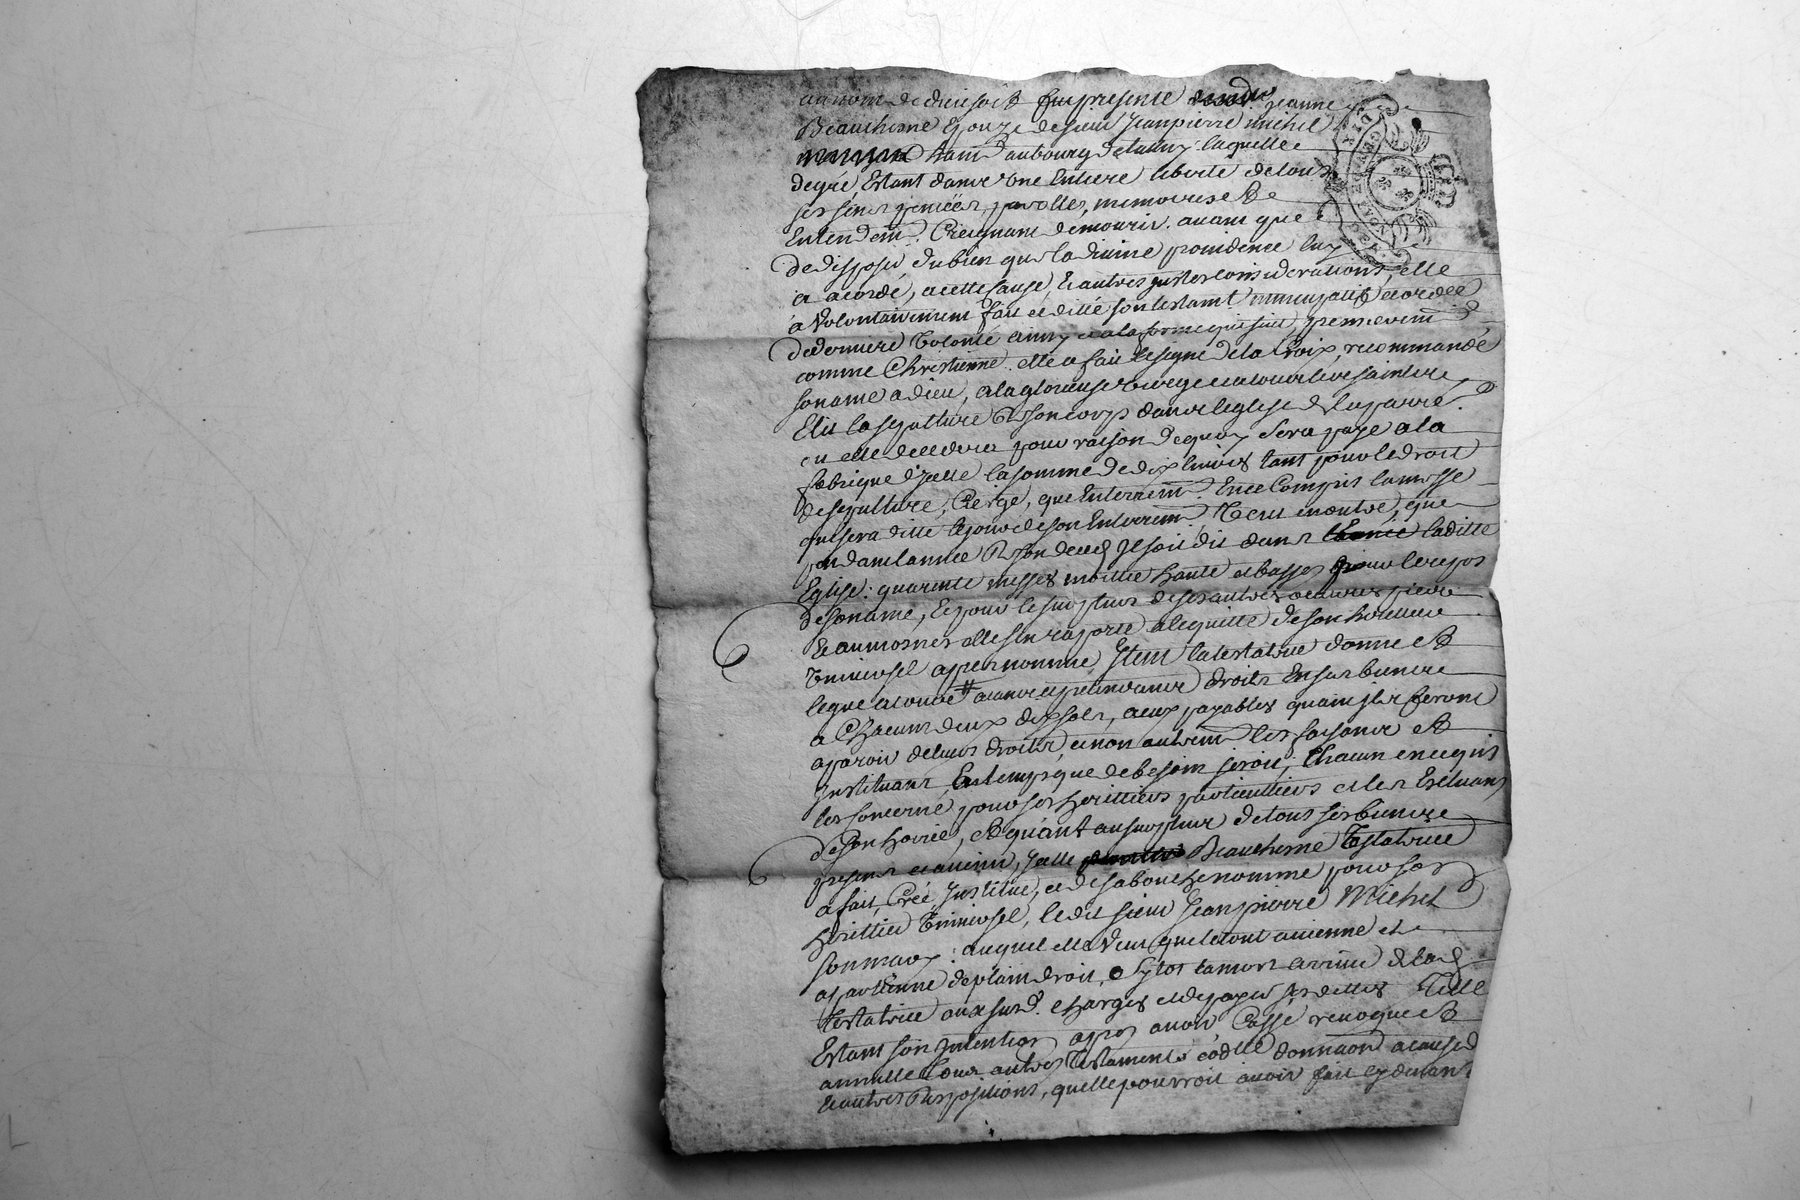 au nom de dieu soit fut presente Jeanne
Beauchesne Epouze de sieur Jean pierre michel
hant. au bourg de laquelle
degré Estant dans une Entiere liberté de tous
ses sens pencées, parolles, memoires Et
Entendem. Creignant de mourir avant que
de disposer du bien que la divine providence luy
a acordé, a cette cause, Et autres justes considerations, elle
a Volontairement fait et dicté son testamt nuncupatif et ordce
de derniere Volonté ainsy et a la forme qui suit, premierem
comme Chrestienne elle a fait le signe de la Croix, recommandé
son ame a dieu, a la glorieuse vierge et a tous les saints
Elit la sepulture de son corps dans l'eglise de la parre
ou elle decedera pour raison de quoy sera paye a la
fabrique d'jcelle la somme de dix livres tant pour le droit
de sepulture, Cierge, que Enterrem. En ce Compris la messe
qui sera ditte le jour de son Enterrem. Veut en outre, que
pendant l'année de son deces Il soit dit dans laditte
Eglise quarente messes moitié haute et basses pour le repos
de son ame, Et pour le surplus de ses autres oeuvres pieux
Et aumosnes elle s'en raporte a lequitté de son heritier
Universel apres nommé, Item la testatrice donne et
legue a tous ceux pretendants droits En ses biens
a Chacun deux dix sols, a eux payables quand ils feront
aparoir de leurs droits et non autrem les faisant et
Instituant, Chacun en ce qui
les Concerne pour ses heritiers particuliers et les Excluant
de son hoirie, Et quant au surplus de tous ses biens
presens et avenir, Jcelle Beauchesne Testatrice
a fait, Créé, Institué, et de sa bouche nommé pour son
heritier Universel, le dit sieur Jean pierre Michel
son mary: auquel elle Veut que le tout avienne et
apartienne de plain droit, sytot la mort arrivée de lad
testatrice aux susd. charges et de payer ses dettes Telle
Estant son Intention apres avoir Cassé revoqué et
annullé tous autres Testaments codille donnaon a cause d
Et autres Dispositions, quelle pourroit avoir fait cy devant